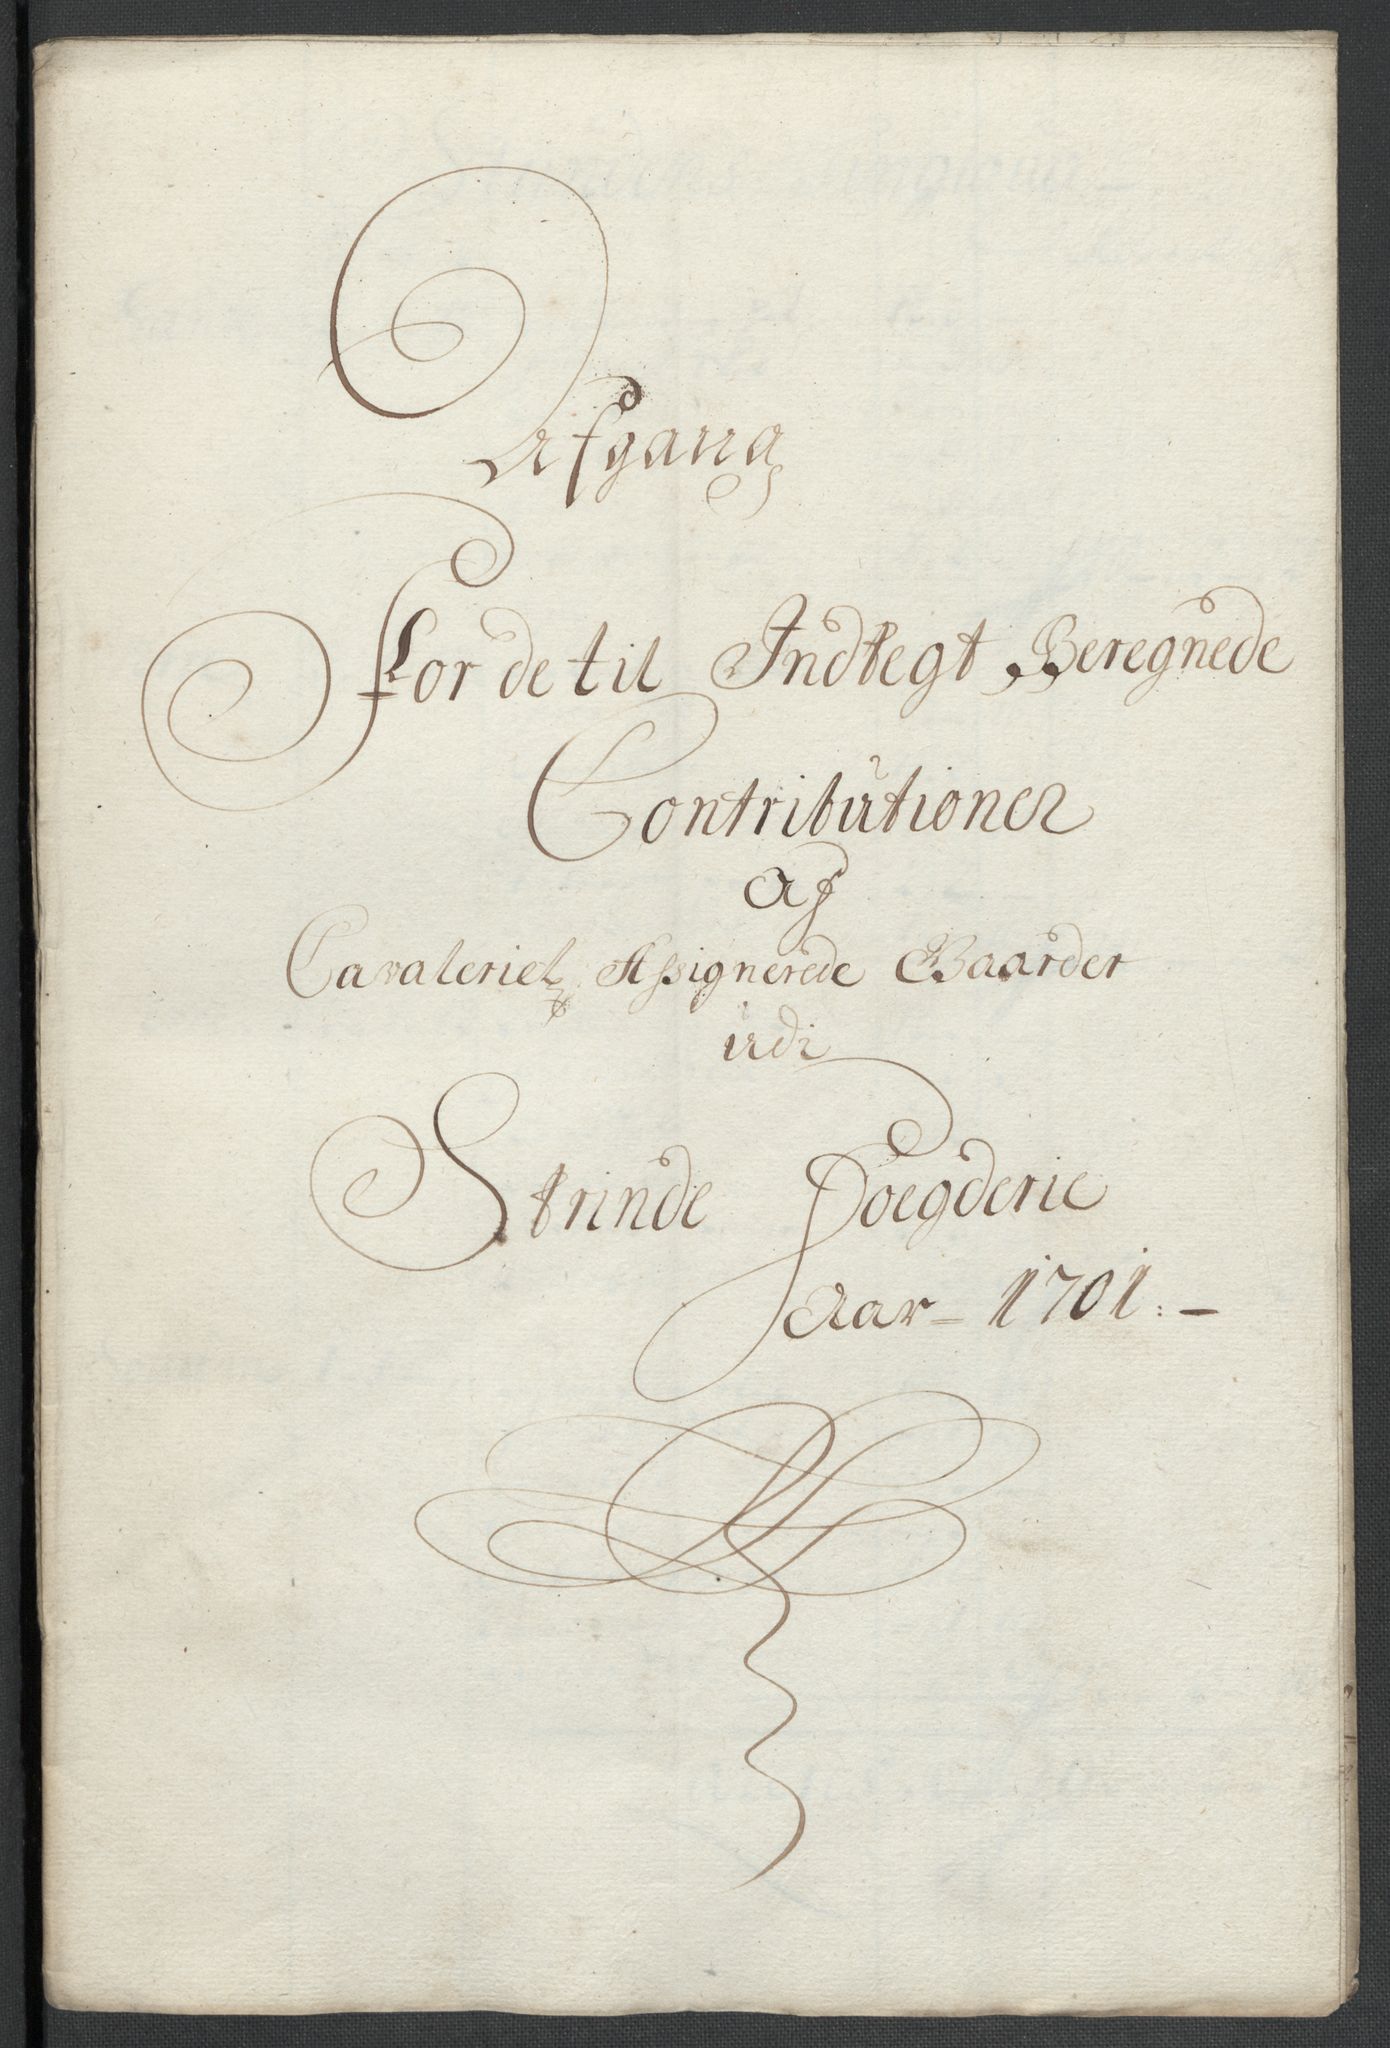 Afgang
For de til Indtegt Beregnede
Contributioner
af
Cavaleriet Assignerede Gaarder
udi
Strinde Foegderie
Aar 1701.